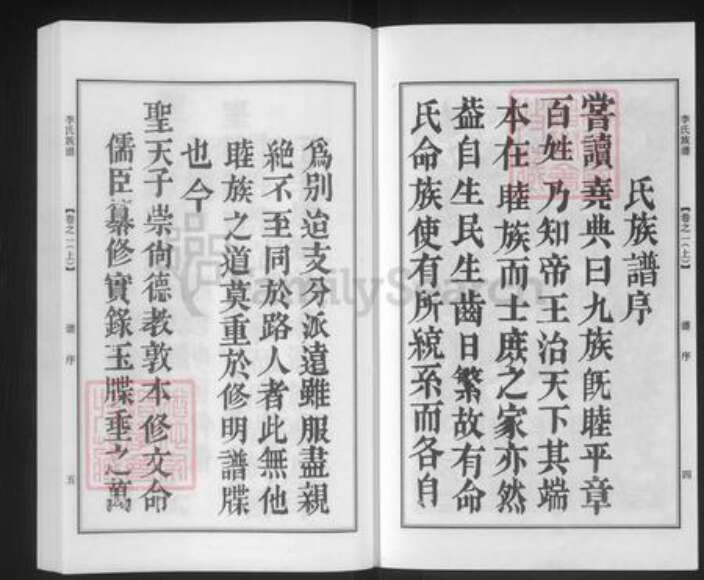 李氏族谱
【卷之一(上)】
谱序
四
氏族譜序
嘗讀堯典曰九族旣睦平章
百姓乃知帝王治天下其端
本在睦族而士庶之家亦然
葢自生民生齒日繁故有命
氏命族使有所統系而各自
爲别迨支分派遠雖服盡親
絶不至同於路人者此無他
睦族之道莫重於修明譜牒
也今
聖天子崇尙德教敦本修文命
儒臣纂修實錄玉牒垂之萬
李氏族谱
【卷之一(上)】
谱序
五
FamilySearch